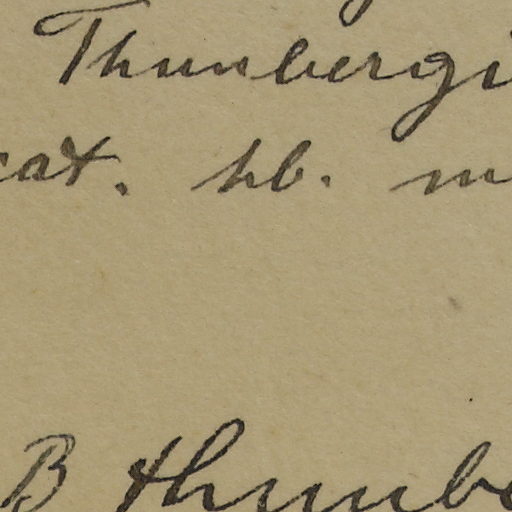 Thunbergi
cat. hb. m
B thunbe